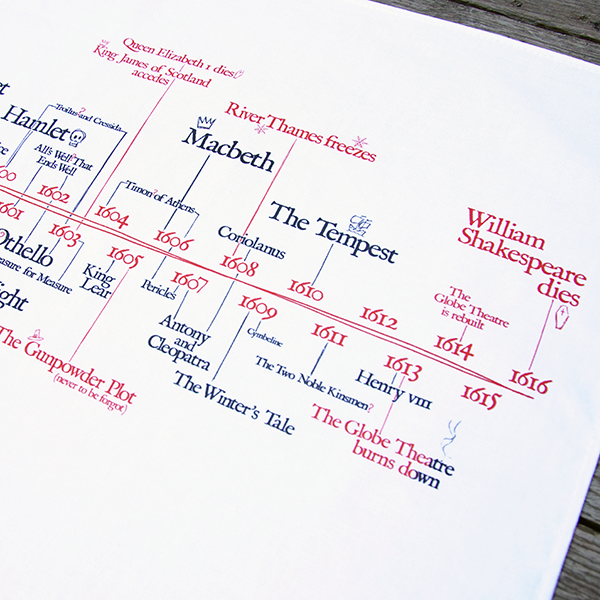 Queen Elizabeth 1 dies
King James of Scotland
accedes
River Thames freezes
Troilus? and Cressida
Hamlet
All's Well? That
Ends Well
Macbeth
Timon? of Athens
The Tempest
Coriolanus
William
Shakespeare
dies
The
Globe Theatre
is rebuilt
1602
1604
1606
1608
1610
1612
1614
1616
1601
1603
1605
1607
1609
1611
1613
1615
Othello
King
Lear
Pericles
Antony
and
Cleopatra
The Winter's Tale
Cymbeline
The Two Noble Kinsmen?
Henry VIII
The Globe Theatre
burns down
The Gunpowder Plot
(never to be forgot)